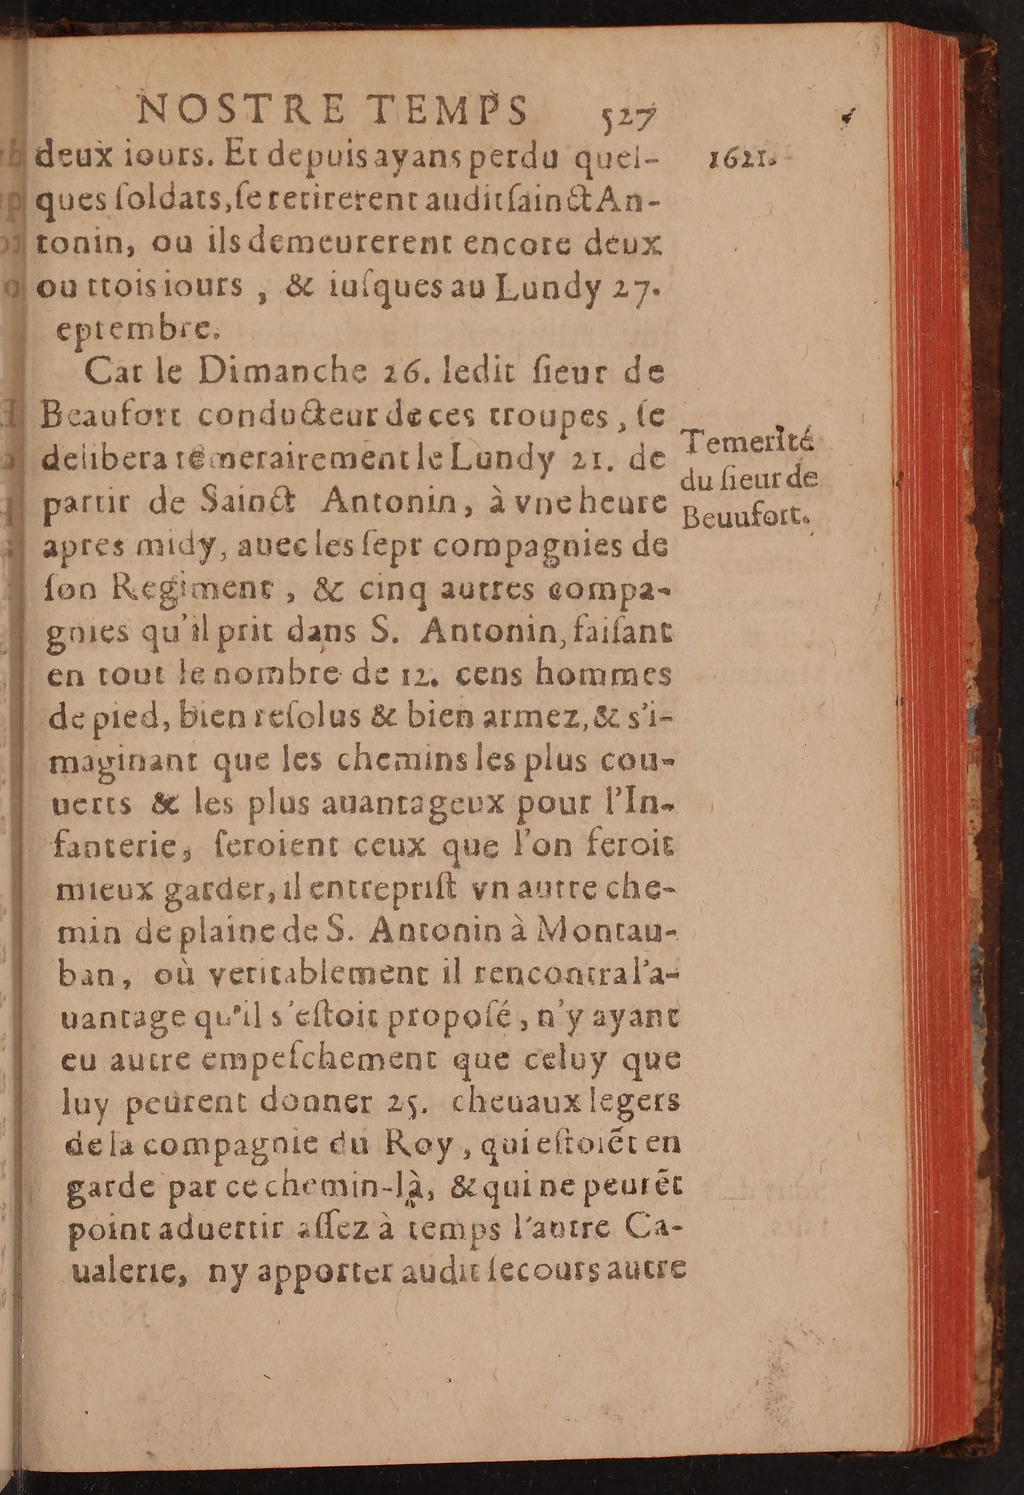 NOSTRE TEMPS 527
deux iours. Et depuis ayans perdu quel-
1621.
ques ſoldats, ſe retirerent audit ſainct An-
tonin, ou ils demeurerent encore deux
ou ttois iours, & iuſques au Lundy 27.
eptembre.
Car le Dimanche 26. ledit ſieur de
Beaufort conducteur de ces troupes, ſe
delibera témerairement le Lundy 21. de
partir de Sainct Antonin, à vne heure
apres midy, auec les ſept compagnies de
Temerité
du ſieur de
Beuufort.
ſon Regiment, & cinq autres compa-
gnies qu'il prit dans S. Antonin, faiſant
en tout le nombre de 12. cens hommes
de pied, bien reſolus & bien armez, & s'i-
maginant que les chemins les plus cou-
uerts & les plus auantageux pour l'In-
fanterie, ſeroient ceux que l'on feroit
mieux garder, il entrepriſt vn autre che-
min de plaine de S. Antonin à Montau-
ban, où veritablement il rencontra l'a-
uantage qu'il s'eſtoit propoſé, n'y ayant
eu autre empeſchement que celuy que
luy peurent donner 25. cheuaux legers
de la compagnie du Roy, qui eſtoiẽt en
garde par ce chemin-là, & qui ne peurẽt
point aduertir aſſez à temps l'autre Ca-
ualerie, ny apporter audit ſecours autre